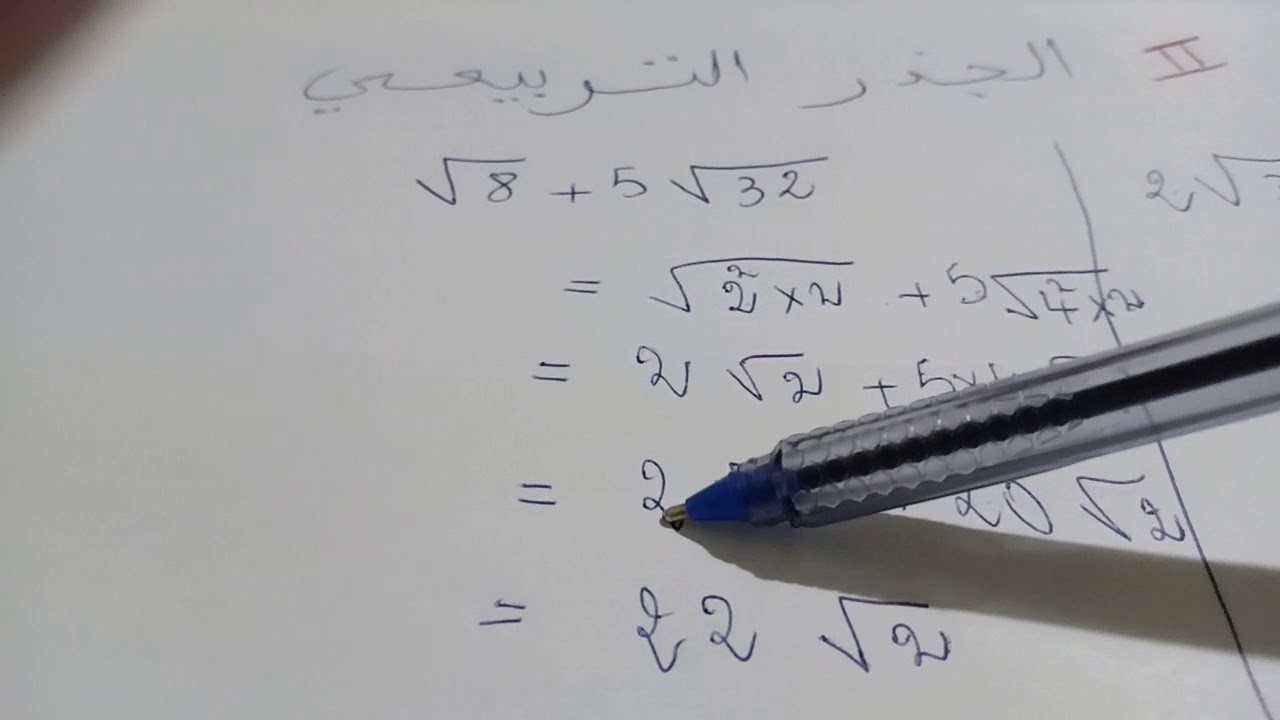 II الجذر التربيعي
√8 + 5 √32
2√
= √2² × 2 + 5√4² × 2
= 2 √2 + 5×
= 2 20 √2
= 22 √2